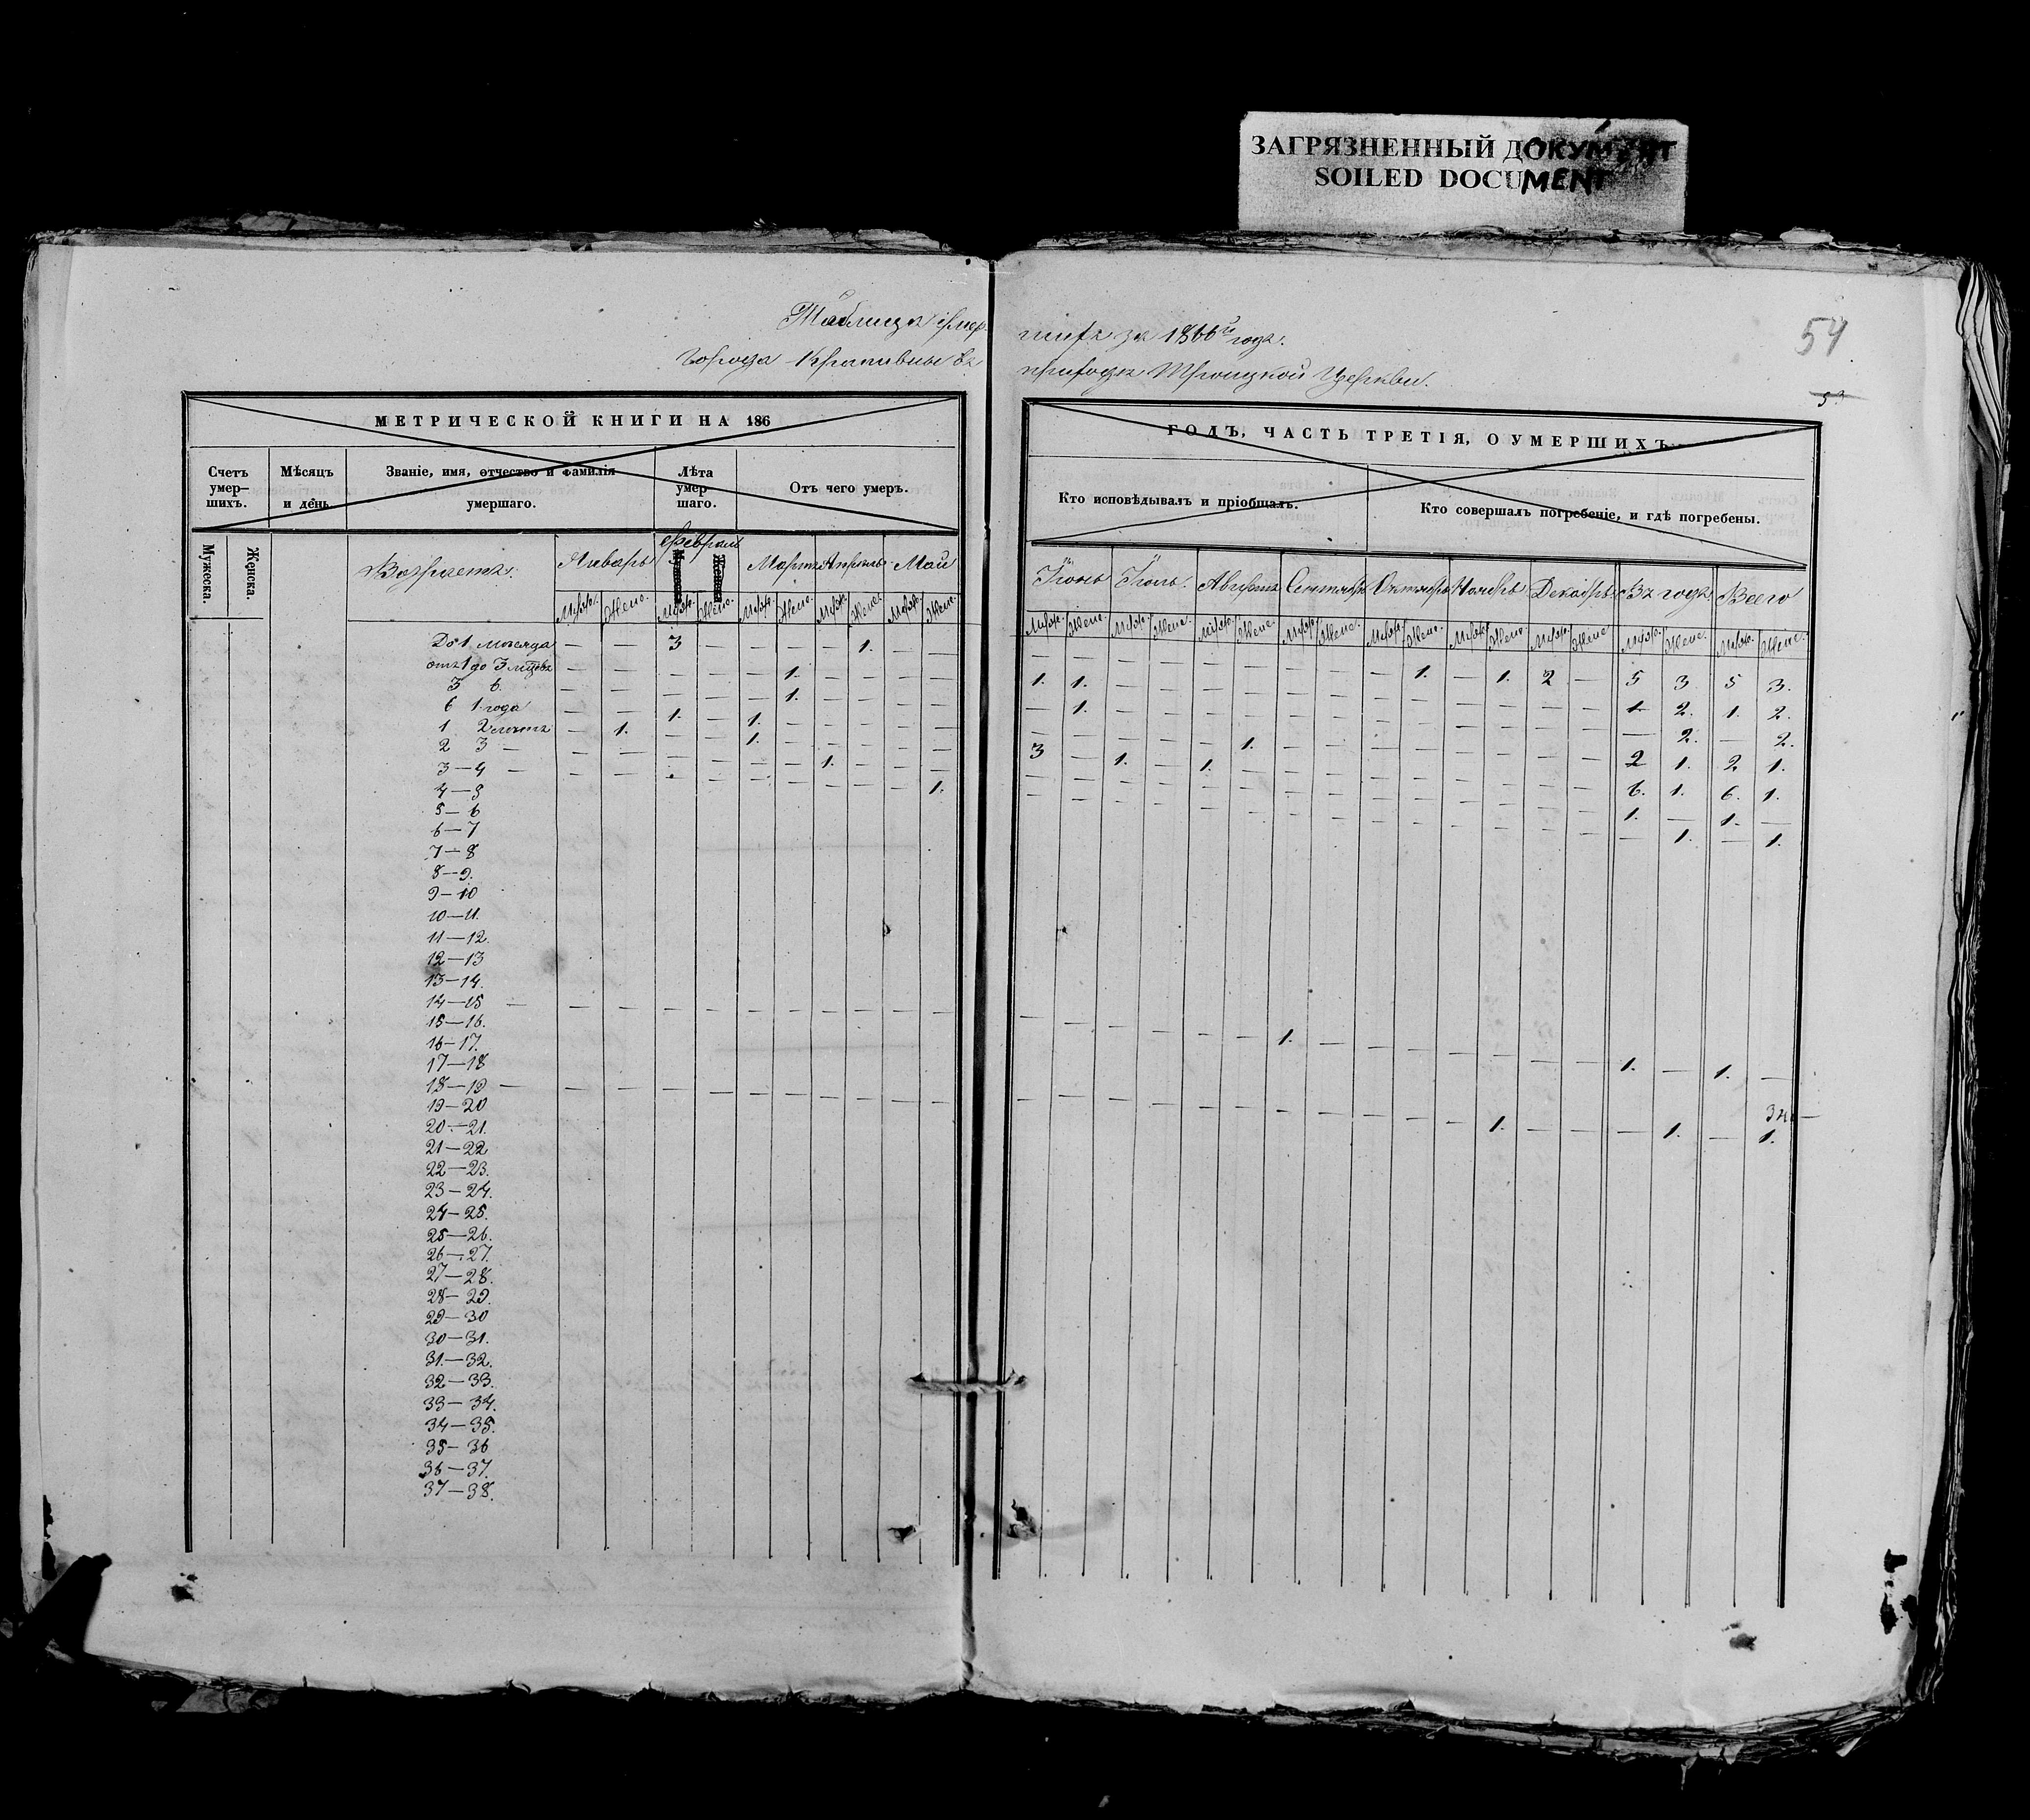 ЗАГРЯЗНЕННЫЙ ДОКУМЕНТ
SOILED DOCUMENT
54
53
Таблица умер- шихъ за 1866й годъ.
города Крапивны въ приходѣ Троицкой Церкви.
МЕТРИЧЕСКОЙ КНИГИ НА 186 ГОДЪ, ЧАСТЬ ТРЕТІЯ, О УМЕРШИХЪ.
Счетъ умер–шихъ.
Мѣсяцъ и день
Званіе, имя, отчество и фамилія умершаго.
Лѣта умер шаго.
Отъ чего умеръ.
Кто исповѣдывалъ и пріобщалъ.
Кто совершалъ погребеніе, и гдѣ погребены.
Мужеска. Женска.
Возрастъ. Январь Февраль Мартъ Апрѣль Май Іюнь Іюль Августъ Сентябрь Октябрь Ноябрь Декабрь Въ годъ Всего
Муж. Жен. Муж. Жен. Муж. Жен. Муж. Жен. Муж. Жен. Муж. Жен. Муж. Жен. Муж. Жен. Муж. Жен. Муж. Жен. Муж. Жен. Муж. Жен. Муж. Жен. Муж. Жен.
До 1 мѣсяца — — 3 — — — — 1. — — 1. 1. — — — — — — — 1. — 1. 2 — 5 3. 5 3.
отъ 1 до 3 мѣсяцъ — — — — — 1. — — — — — 1. — — — — — — — — — — — — 1 2. 1. 2.
3 6. — — — — — 1. — — — — — — — — — 1. — — — — — — — — — 2. — 2.
6 1 года — — 1. — 1. — — — — — 2 1. 2 1.
1 2 лѣтъ — 1. — — 1. — — — — — 3 — 1. — 1. — — — — — — — — — 6. 1. 6. 1.
2 3 — — — — — — — 1. — — — 1. — 1. —
3—4 — — — — — — — — — — 1. — 1. — 1.
4—5
5—6
6—7
7—8
8—9.
9—10
10—11.
11—12.
12—13
13—14.
14—15 — — — — — — — — — — — — — — — — — 1. — — — — — — — 1. — 1. —
15—16.
16—17.
17—18
18—19 — — — — — — — — — — — — — — — — — — — — — — — 1. — — — 1. — 1.
19—20
20—21.
21—22
22—23.
23—24.
24—25.
25—26.
26—27.
27—28.
28—29.
29—30
30—31.
31—32.
32—33.
33—34.
34—35.
35—36
36—37.
37—38.